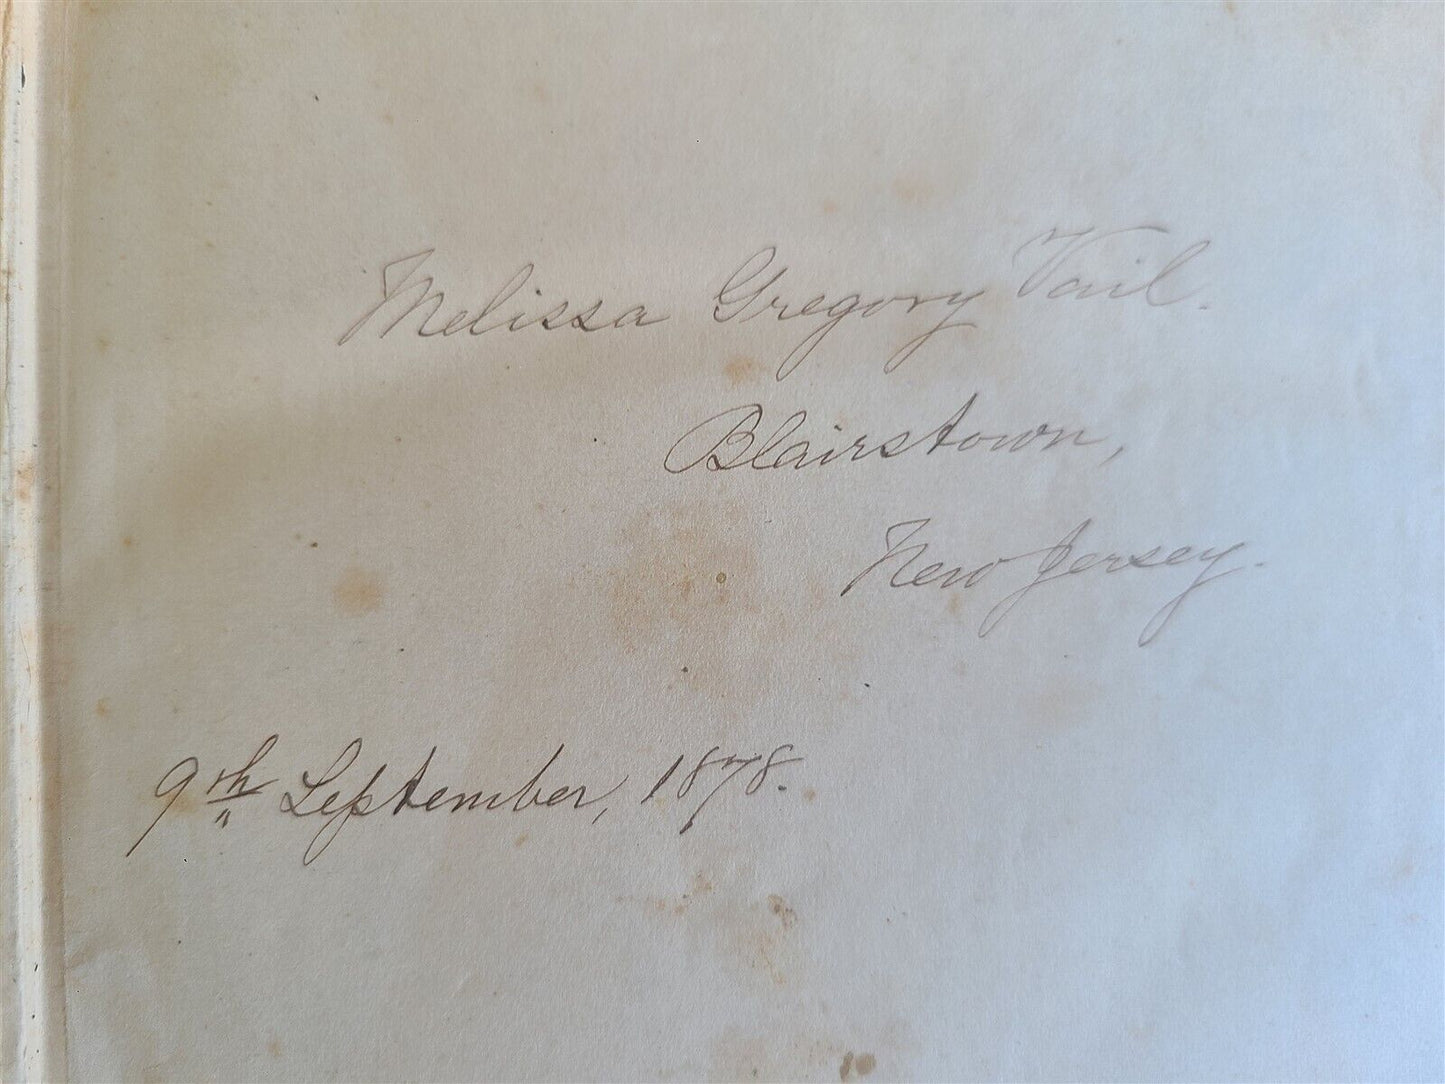 Melissa Gregory Vail.
Blairstown,
New Jersey.
9th September, 1878.